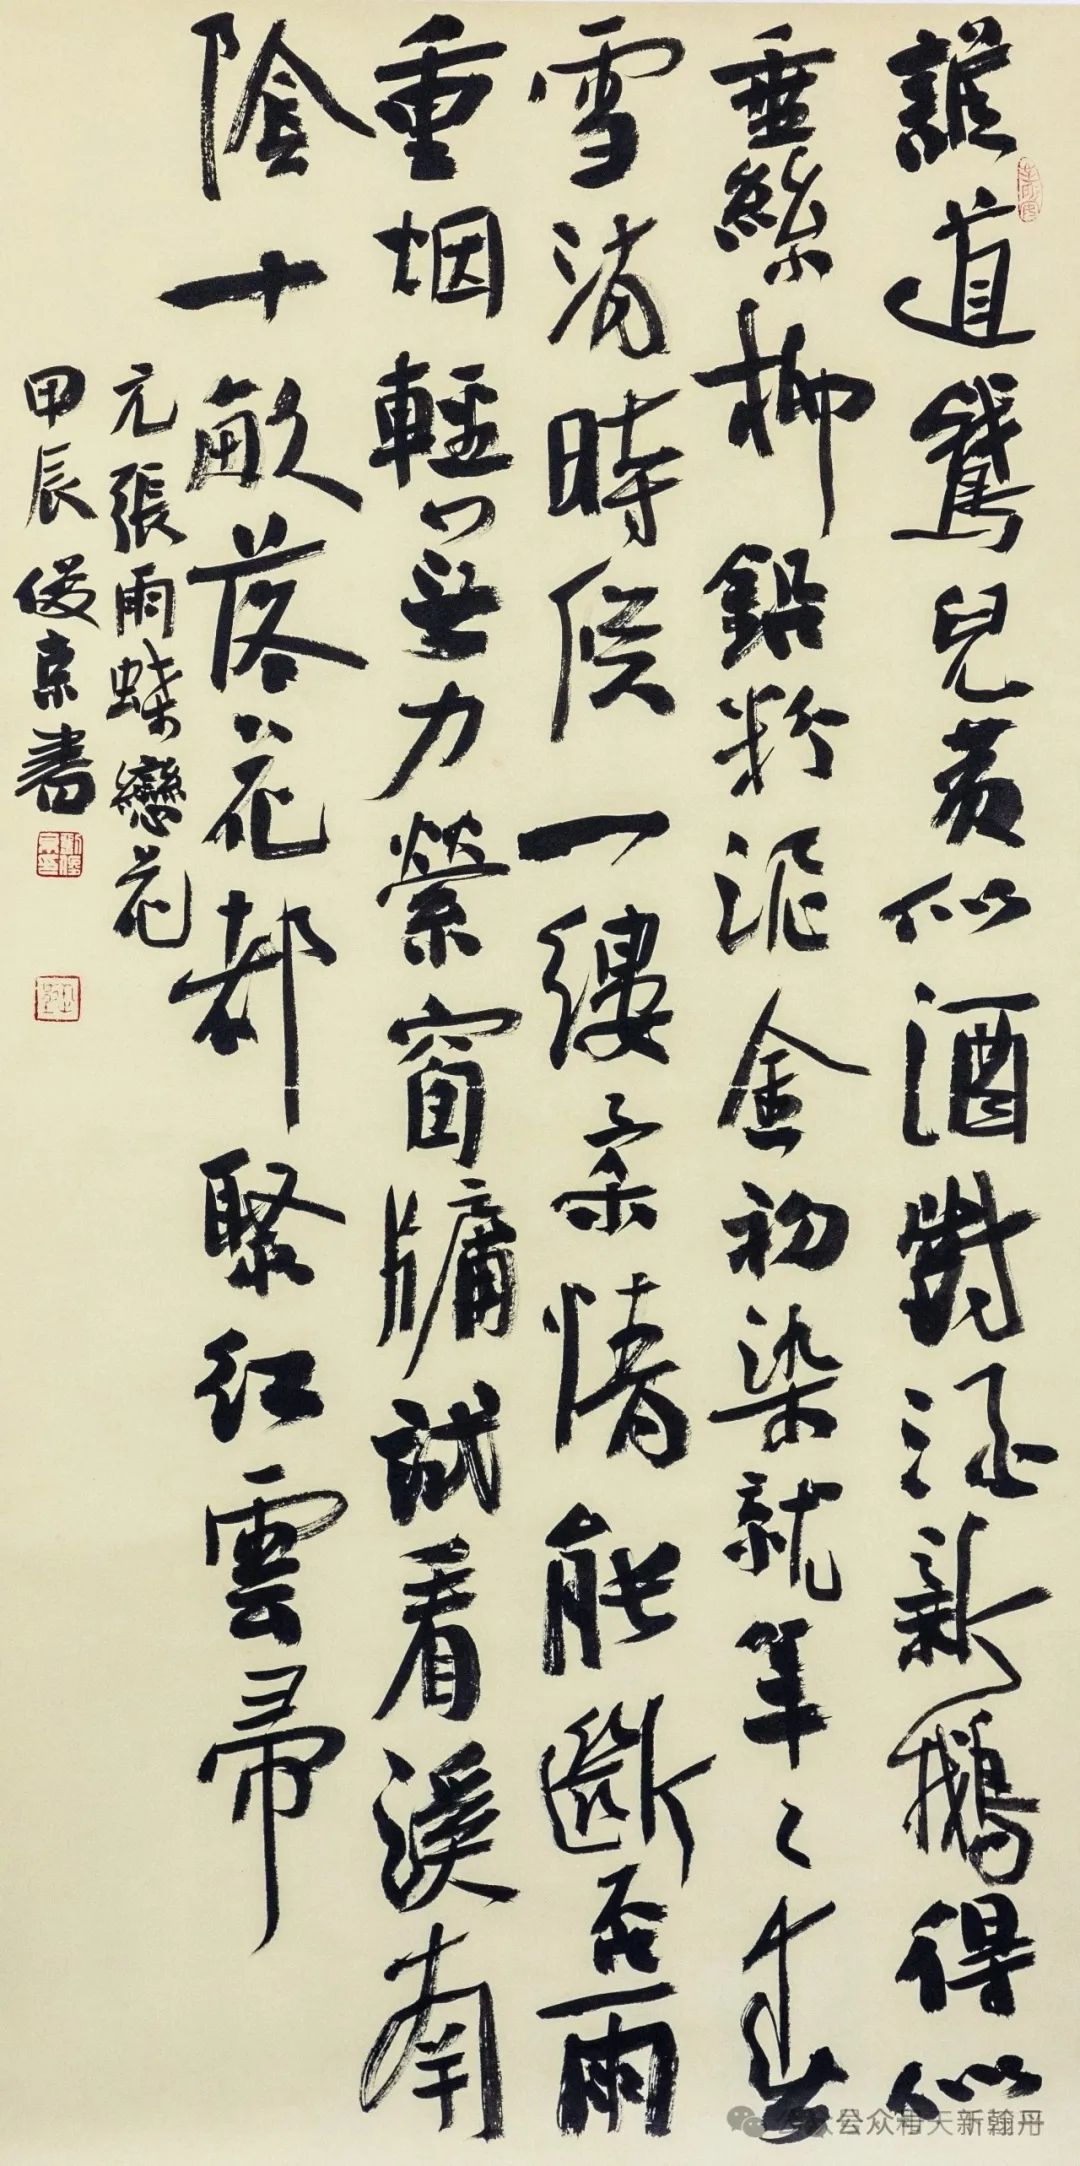 誰道鵞兒黄似酒對酒新鵝得似
垂絲柳鉛粉泥金初染就年〻春
雪消時候一縷柔情能斷否雨
重烟輕無力縈窗牖試看溪南
陰十畝落花都聚紅雲帚
元張雨蝶戀花
甲辰俊京書
公众号 天新翰丹